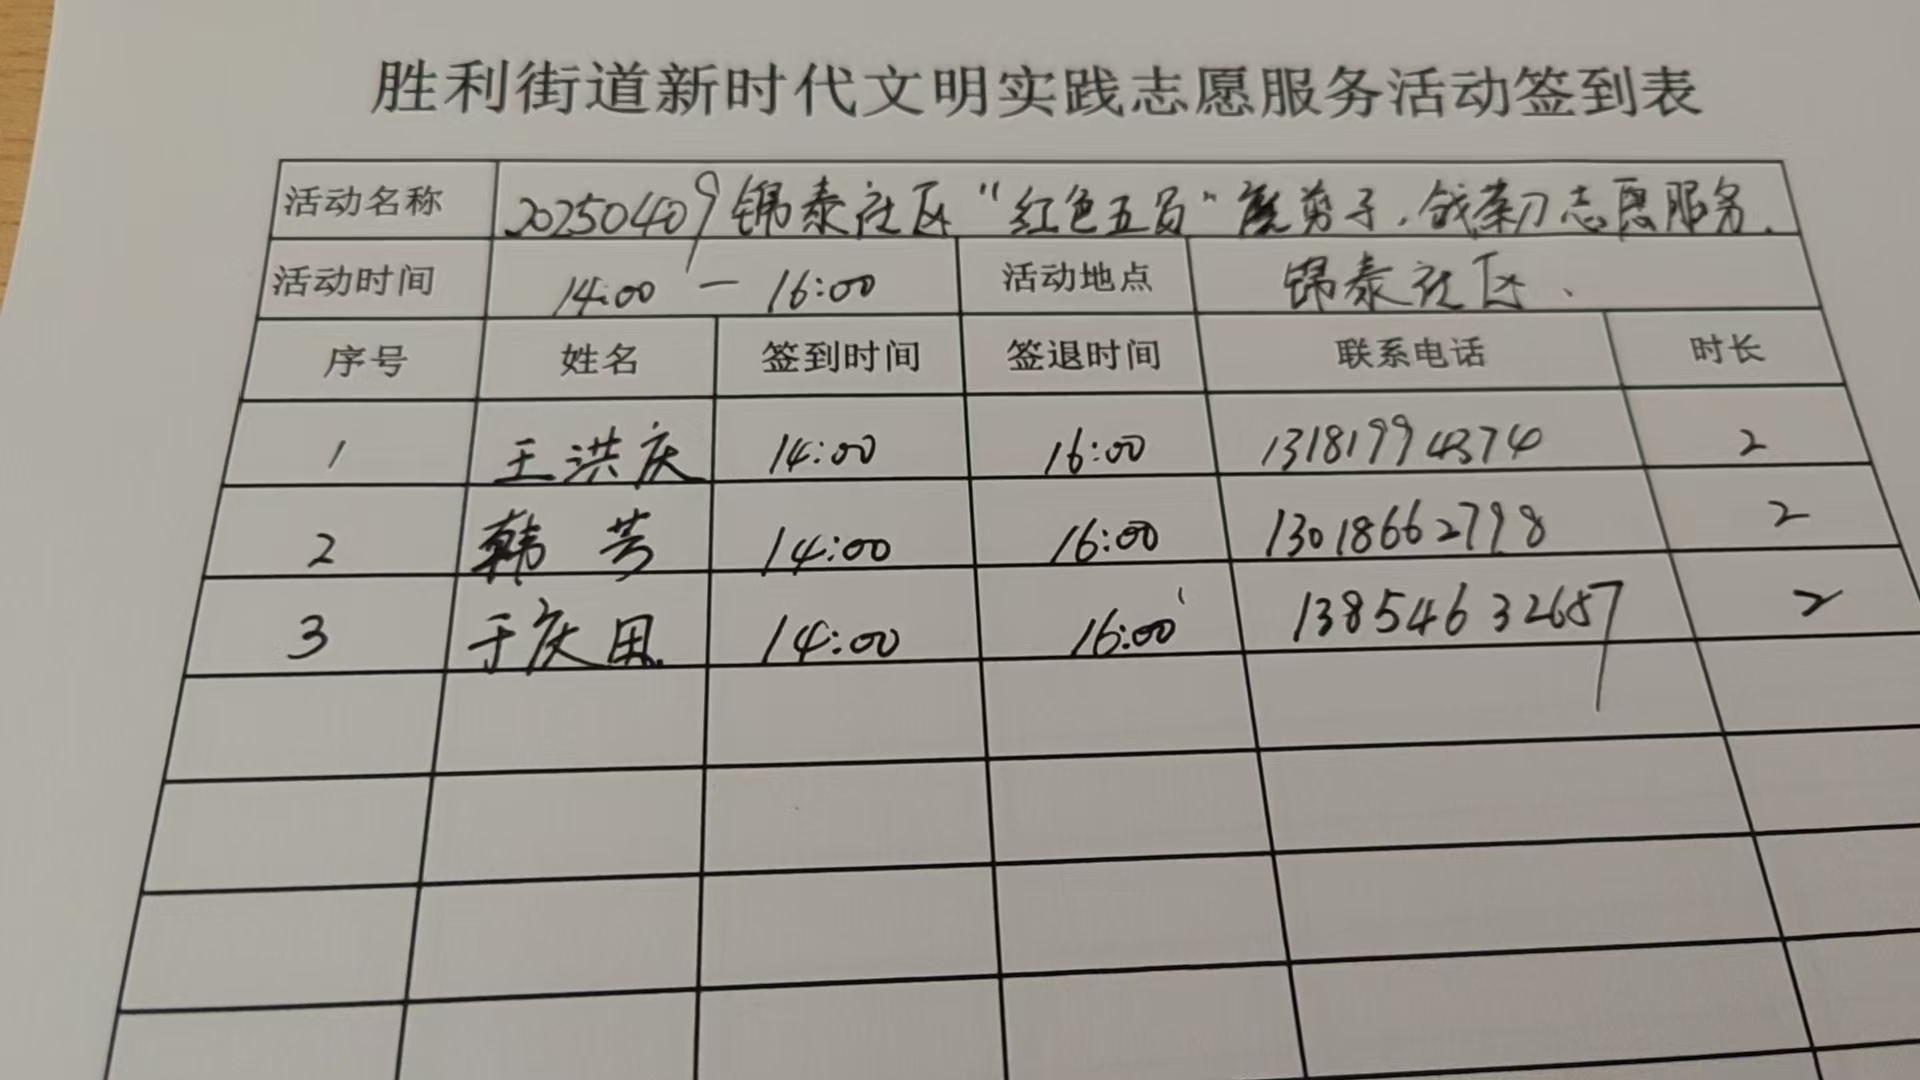 胜利街道新时代文明实践志愿服务活动签到表
活动名称 20250409锦泰社区“红色五员”磨剪子、戗菜刀志愿服务.
活动时间 14:00 — 16:00 活动地点 锦泰社区.
序号 姓名 签到时间 签退时间 联系电话 时长
1 王洪庆 14:00 16:00 13181994374 2
2 韩芳 14:00 16:00 13018662798 2
3 于庆田 14:00 16:00 13854632657 2